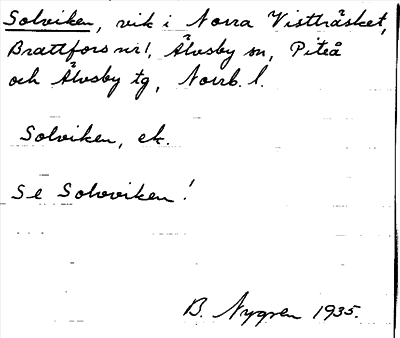 Solviken, vik i Norra Vistträsket,
Brattfors nr 1, Älvsby sn, Piteå
och Älvsby tg, Norrb. l.
Solviken, ek.
Se Solovviken!
B. Nygren 1935.